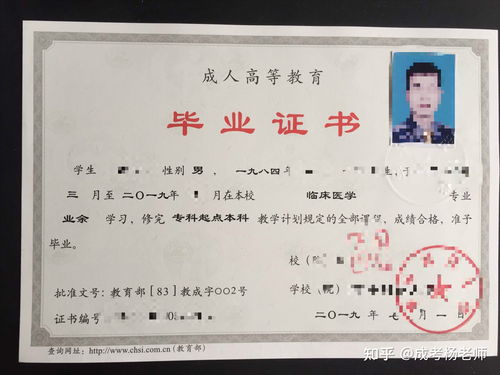 成人高等教育
毕业证书
学生 性别 男 ，一九八四年 生，于
三 月至 二〇一九年 月在本校 临床医学 专业
业余 学习，修完 专科起点本科 教学计划规定的全部课程，成绩合格，准予
毕业。
校（院
批准文号：教育部［83］教成字002号 学校（院）
证书编号 二〇一九年 七 月 一 日
查询网址：http://www.chsi.com.cn（教育部）
知乎 @成考杨老师